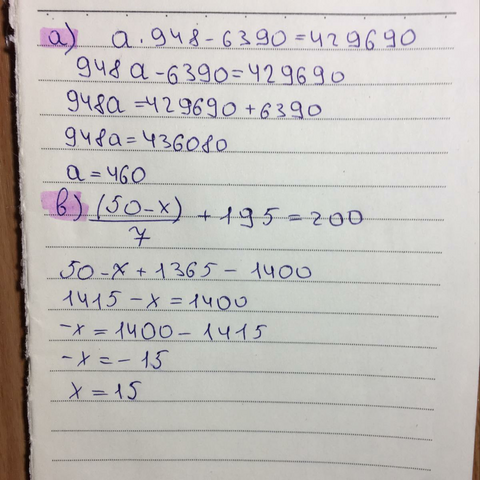 а) a · 948 - 6390 = 429690
948a - 6390 = 429690
948a = 429690 + 6390
948a = 436080
a = 460
в) (50 - x)/7 + 195 = 200
50 - x + 1365 - 1400
1415 - x = 1400
-x = 1400 - 1415
-x = - 15
x = 15